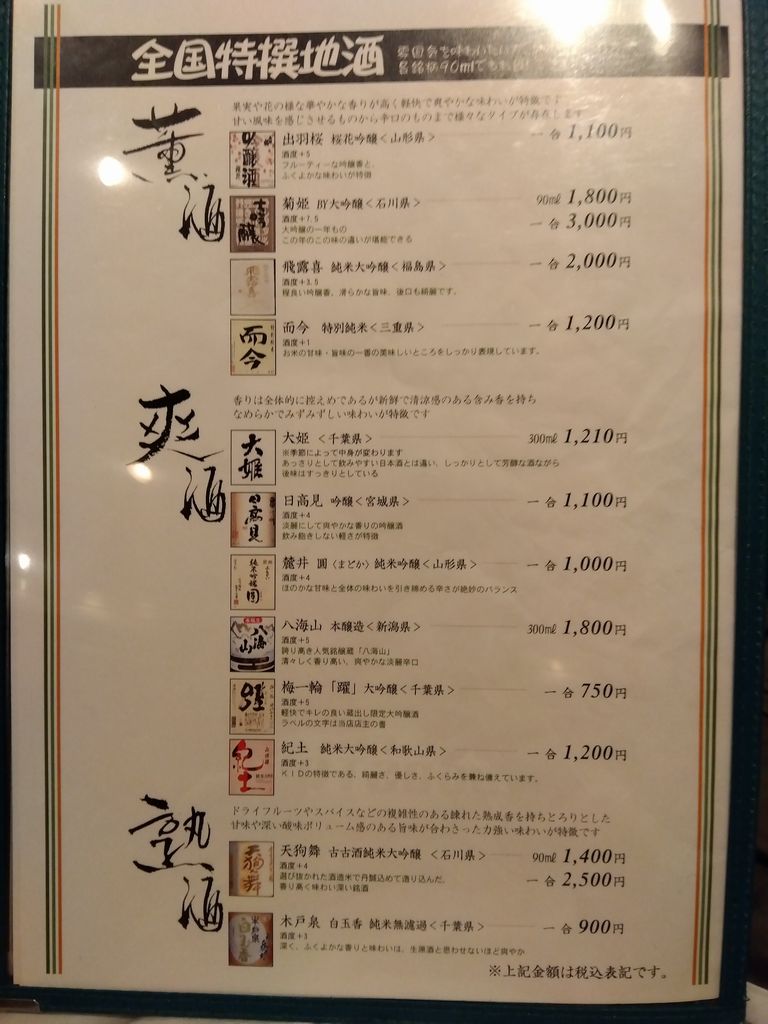 全国特撰地酒
薫酒
果実や花の様な華やかな香りが高く軽快で爽やかな味わいが特徴です
甘い風味を感じさせるものから辛口のものまで様々なタイプが存在します
出羽桜 桜花吟醸<山形県> 一合 1,100円
酒度+5
フルーティーな吟醸香と、
ふくよかな味わいが特徴
菊姫 BY大吟醸<石川県> 90㎖ 1,800円
酒度+7.5 一合 3,000円
大吟醸の一年もの
この年のこの味の違いが堪能できる
飛露喜 純米大吟醸<福島県> 一合 2,000円
酒度+3.5
程良い吟醸香、滑らかな旨味、後口も綺麗です。
而今 特別純米<三重県> 一合 1,200円
而今
酒度+1
お米の甘味・旨味の一番の美味しいところをしっかり表現しています。
爽酒
香りは全体的に控えめであるが新鮮で清涼感のある含み香を持ち
なめらかでみずみずしい味わいが特徴です
大姫 <千葉県> 300㎖ 1,210円
大姫
※季節によって中身が変わります
あっさりとして飲みやすい日本酒とは違い、しっかりとして芳醇な酒ながら
後味はすっきりとしている
日高見 吟醸<宮城県> 一合 1,100円
日高見
酒度+4
淡麗にして爽やかな香りの吟醸酒
飲み飽きしない軽さが特徴
麓井 圓〈まどか〉純米吟醸<山形県> 一合 1,000円
酒度+4
ほのかな甘味と全体の味わいを引き締める辛さが絶妙のバランス
八海山 本醸造<新潟県> 300㎖ 1,800円
八海山
酒度+5
誇り高き人気銘醸蔵「八海山」
清々しく香り高い、爽やかな淡麗辛口
梅一輪「躍」大吟醸<千葉県> 一合 750円
酒度+5
軽快でキレの良い蔵出し限定大吟醸酒
ラベルの文字は当店店主の書
紀土 純米大吟醸<和歌山県> 一合 1,200円
紀土
酒度+3
KIDの特徴である、綺麗さ、優しさ、ふくらみを兼ね備えています。
熟酒
ドライフルーツやスパイスなどの複雑性のある練れた熟成香を持ちとろりとした
甘味や深い酸味ボリューム感のある旨味が合わさった力強い味わいが特徴です
天狗舞 古古酒純米大吟醸 <石川県> 90㎖ 1,400円
天狗舞
酒度+4 一合 2,500円
選び抜かれた酒造米で丹誠込めて造り込んだ、
香り高く味わい深い銘酒
木戸泉 白玉香 純米無濾過<千葉県> 一合 900円
白玉香
酒度+3
深く、ふくよかな香りと味わいは、生原酒と思わせないほど爽やか
※上記金額は税込表記です。